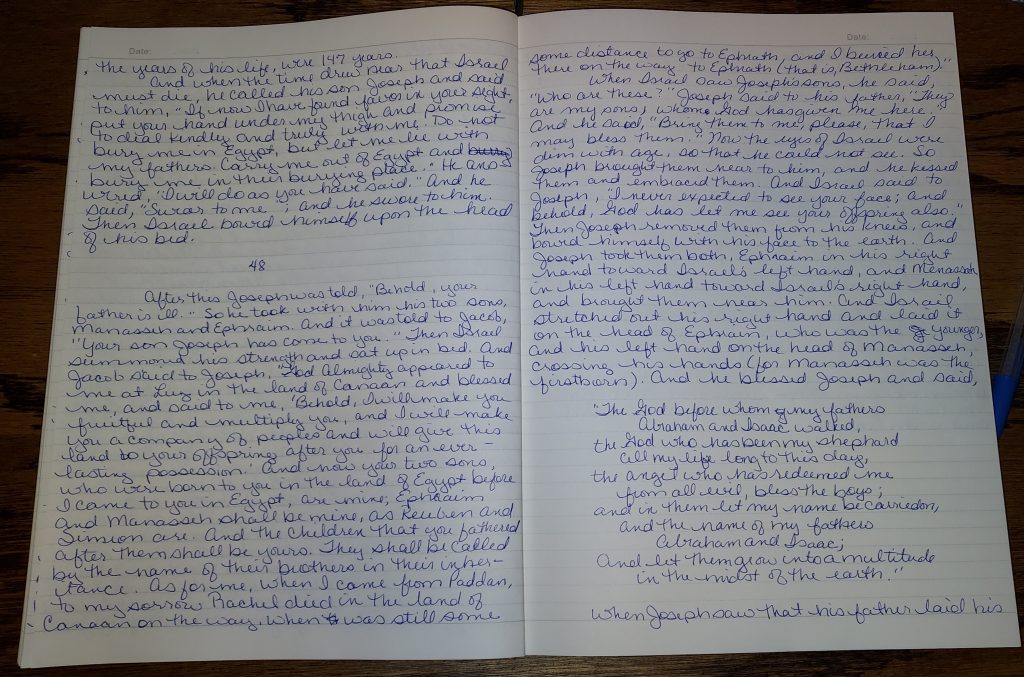 Date:
the years of his life, were 147 years.
And when the time drew near that Israel
must die, he called his son Joseph and said
to him, "If now I have found favor in your sight,
put your hand under my thigh and promise
to deal kindly and truly with me. Do not
bury me in Egypt, but let me lie with
my fathers. Carry me out of Egypt and bury
bury me in their burying place." He ans-
wered, "I will do as you have said." And he
said, "Swear to me"; and he swore to him.
Then Israel bowed himself upon the head
of his bed.
48
After this Joseph was told, "Behold, your
father is ill." So he took with him his two sons,
Manasseh and Ephraim. And it was told to Jacob,
"Your son Joseph has come to you." Then Israel
summoned his strength and sat up in bed. And
Jacob said to Joseph, "God Almighty appeared to
me at Luz in the land of Canaan and blessed
me, and said to me, 'Behold, I will make you
fruitful and multiply you, and I will make
you a company of peoples and will give this
land to your offspring after you for an ever-
lasting possession.' And now your two sons,
who were born to you in the land of Egypt before
I came to you in Egypt, are mine; Ephraim
and Manasseh shall be mine, as Reuben and
Simeon are. And the children that you fathered
after them shall be yours. They shall be called
by the name of their brothers in their inher-
itance. As for me, when I came from Paddan,
to my sorrow Rachel died in the land of
Canaan on the way, when was still some
Date:
some distance to go to Ephrath, and I buried her
there on the way to Ephrath (that is, Bethlehem)."
When Israel saw Joseph's sons, he said,
"Who are these?" Joseph said to his father, "They
are my sons, whom God has given me here."
And he said, "Bring them to me, please, that I
may bless them." Now the eyes of Israel were
dim with age, so that he could not see. So
Joseph brought them near to him, and he kissed
them and embraced them. And Israel said to
Joseph, "I never expected to see your face; and
behold, God has let me see your offspring also."
Then Joseph removed them from his knees, and
bowed himself with his face to the earth. And
Joseph took them both, Ephraim in his right
hand toward Israel's left hand, and Menasseh
in his left hand toward Israel's right hand,
and brought them near him. And Israel
stretched out his right hand and laid it
on the head of Ephraim, who was the younger,
and his left hand on the head of Manasseh,
crossing his hands (for Manasseh was the
firstborn). And he blessed Joseph and said,
"The God before whom my fathers
Abraham and Isaac walked,
the God who has been my shepherd
all my life long to this day,
the angel who has redeemed me
from all evil, bless the boys;
and in them let my name be carried on,
and the name of my fathers
Abraham and Isaac;
And let them grow into a multitude
in the midst of the earth."
When Joseph saw that his father laid his